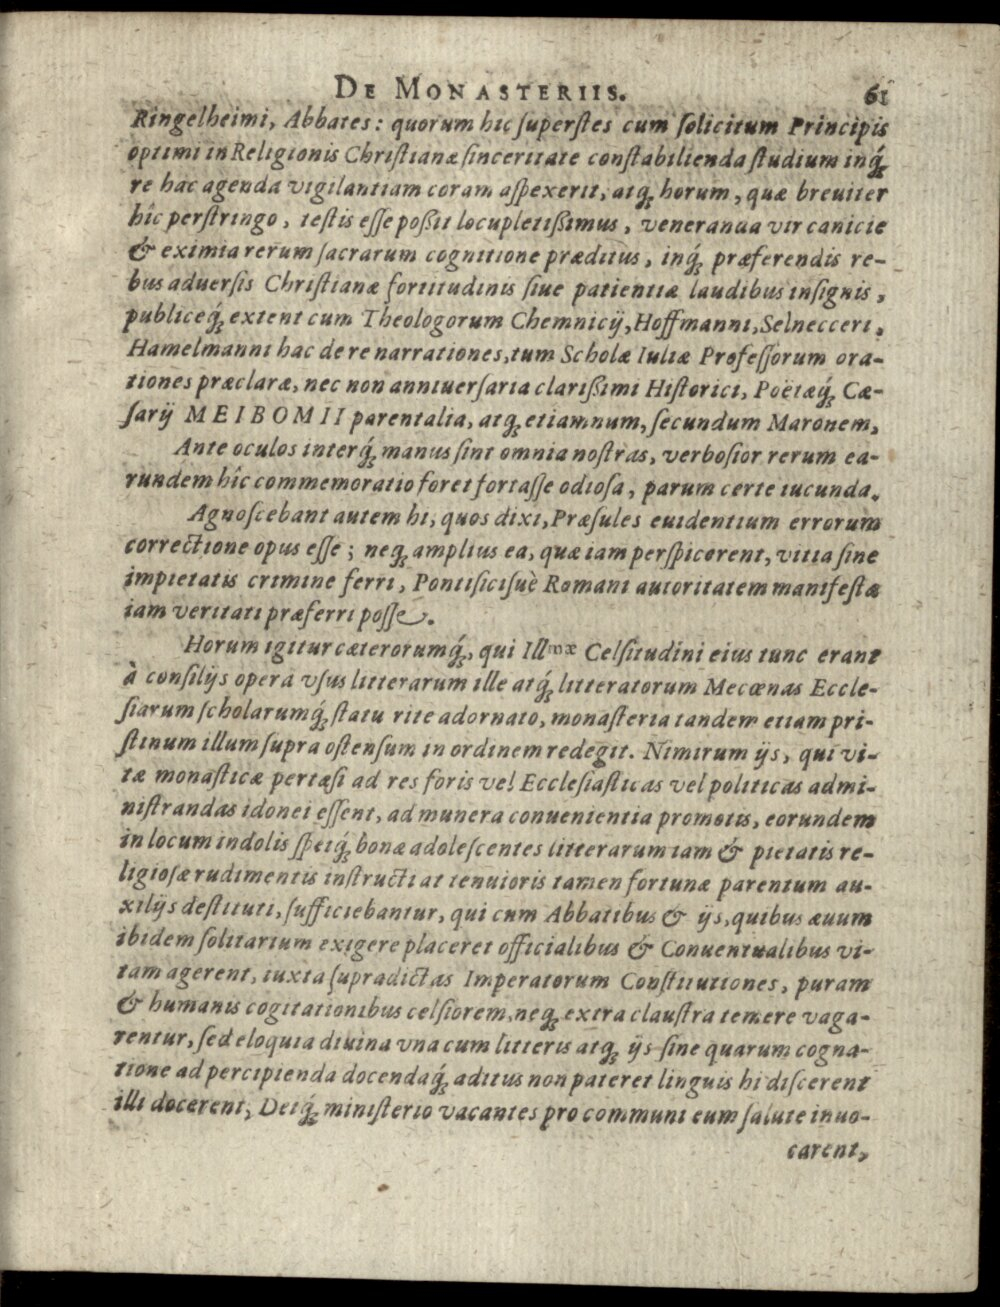 DE MONASTERIIS. 61
Ringelheimi, Abbates: quorum hic ſuperſtes cum ſolicitum Principis
optimi in Religionis Chriſtianæ ſinceritate conſtabilienda ſtudium inq́;
re hac agenda vigilantiam coram aſpexerit, atq; horum, quæ breuiter
hîc perſtringo, teſtis eſſe poßit locupletißimus, veneranda vir canicie
& eximia rerum ſacrarum cognitione præditus, inq́; præferendis re-
bus aduerſis Chriſtianæ fortitudinis ſiue patientiæ laudibus inſignis,
publiceq́; extent cum Theologorum Chemnicij, Hoffmanni, Selnecceri,
Hamelmanni hac de re narrationes, tum Scholæ Iuliæ Profeſſorum ora-
tiones præclaræ, nec non anniuerſaria clarißimi Hiſtorici, Poëtæq́; Cæ-
ſarij MEIBOMII parentalia, atq; etiamnum, ſecundum Maronem,
Ante oculos interq́; manus ſint omnia noſtras, verboſior rerum ea-
rundem hîc commemoratio foret fortaſſe odioſa, parum certe iucunda.
Agnoſcebant autem hi, quos dixi, Præſules euidentium errorum
correctione opus eſſe; neq; amplius ea, quæ iam perſpicerent, vitia ſine
impietatis crimine ferri, Pontificiſuè Romani autoritatem manifeſtæ
iam veritati præferri poſſe.
Horum igitur cæterorumq́;, qui Illmæ Celſitudini eius tunc erant
à conſilijs opera vſus litterarum ille atq́; litteratorum Mecœnas Eccle-
ſiarum ſcholarumq́; ſtatu rite adornato, monaſteria tandem etiam pri-
ſtinum illum ſupra oſtenſum in ordinem redegit. Nimirum ijs, qui vi-
tæ monaſticæ pertæſi ad res foris vel Eccleſiaſticas vel politicas admi-
niſtrandas idonei eſſent, ad munera conuenientia promotis, eorundem
in locum indolis ſpeiq́; bonæ adoleſcentes litterarum iam & pietatis re-
ligioſæ rudimentis inſtructi at tenuioris tamen fortunæ parentum au-
xilijs deſtituti, ſufficiebantur, qui cum Abbatibus & ijs, quibus æuum
ibidem ſolitarium exigere placeret officialibus & Conuentualibus vi-
tam agerent, iuxta ſupradictas Imperatorum Conſtitutiones, puram
& humanis cogitationibus celſiorem, neq; extra clauſtra temere vaga-
rentur, ſed eloquia diuina vna cum litteris atq; ijs ſine quarum cogna-
tione ad percipienda docendaq́; aditus non pateret linguis hi diſcerent
illi docerent, Deiq́; miniſterio vacantes pro communi eum ſalute inuo-
carent,